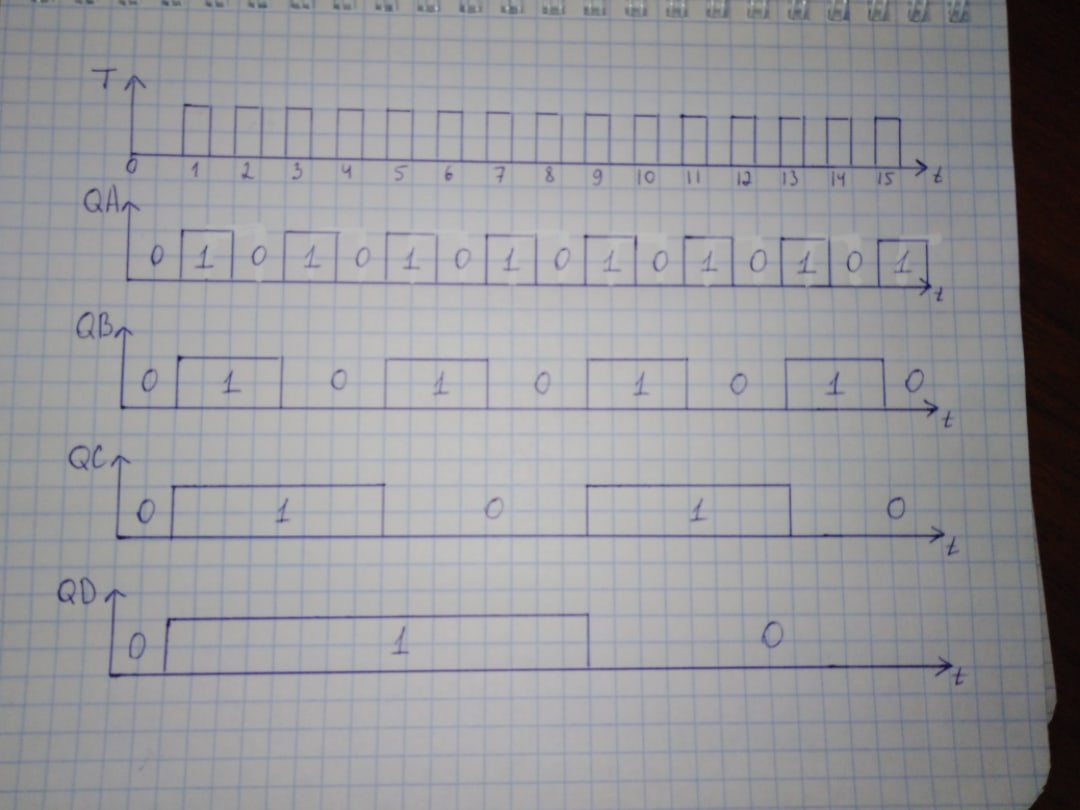 T
0 1 2 3 4 5 6 7 8 9 10 11 12 13 14 15 t
QA
0 1 0 1 0 1 0 1 0 1 0 1 0 1 0 1
t
QB
0 1 0 1 0 1 0 1 0
t
QC
0 1 0 1 0
t
QD
0 1 0
t